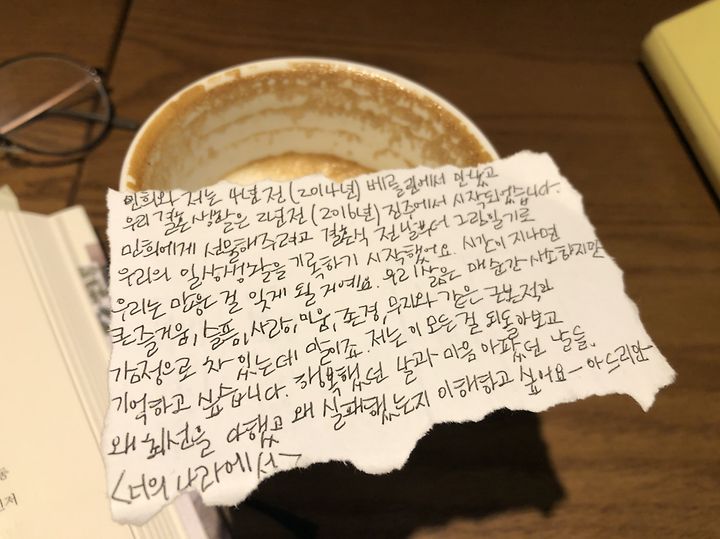 민희와 저는 4년전(2014년) 베를린에서 만났고
우리 결혼생활은 2년전(2016년) 진주에서 시작되었습니다.
민희에게 선물해주려고 결혼식 전날부터 그림일기로
우리의 일상생활을 기록하기 시작했어요. 시간이 지나면
우리는 많은 걸 잊게 될 거예요. 우리 삶은 매순간 사소하지만
큰 즐거움, 슬픔, 사랑, 미움, 존경, 무지와 같은 근본적인
감정으로 차 있는데 말이죠. 저는 이 모든걸 되돌아보고
기억하고 싶습니다. 행복했던 날과 마음 아팠던 날들.
왜 최선을 다했고 왜 실패했는지 이해하고 싶어요- 아드리안-
<너의 나라에서>